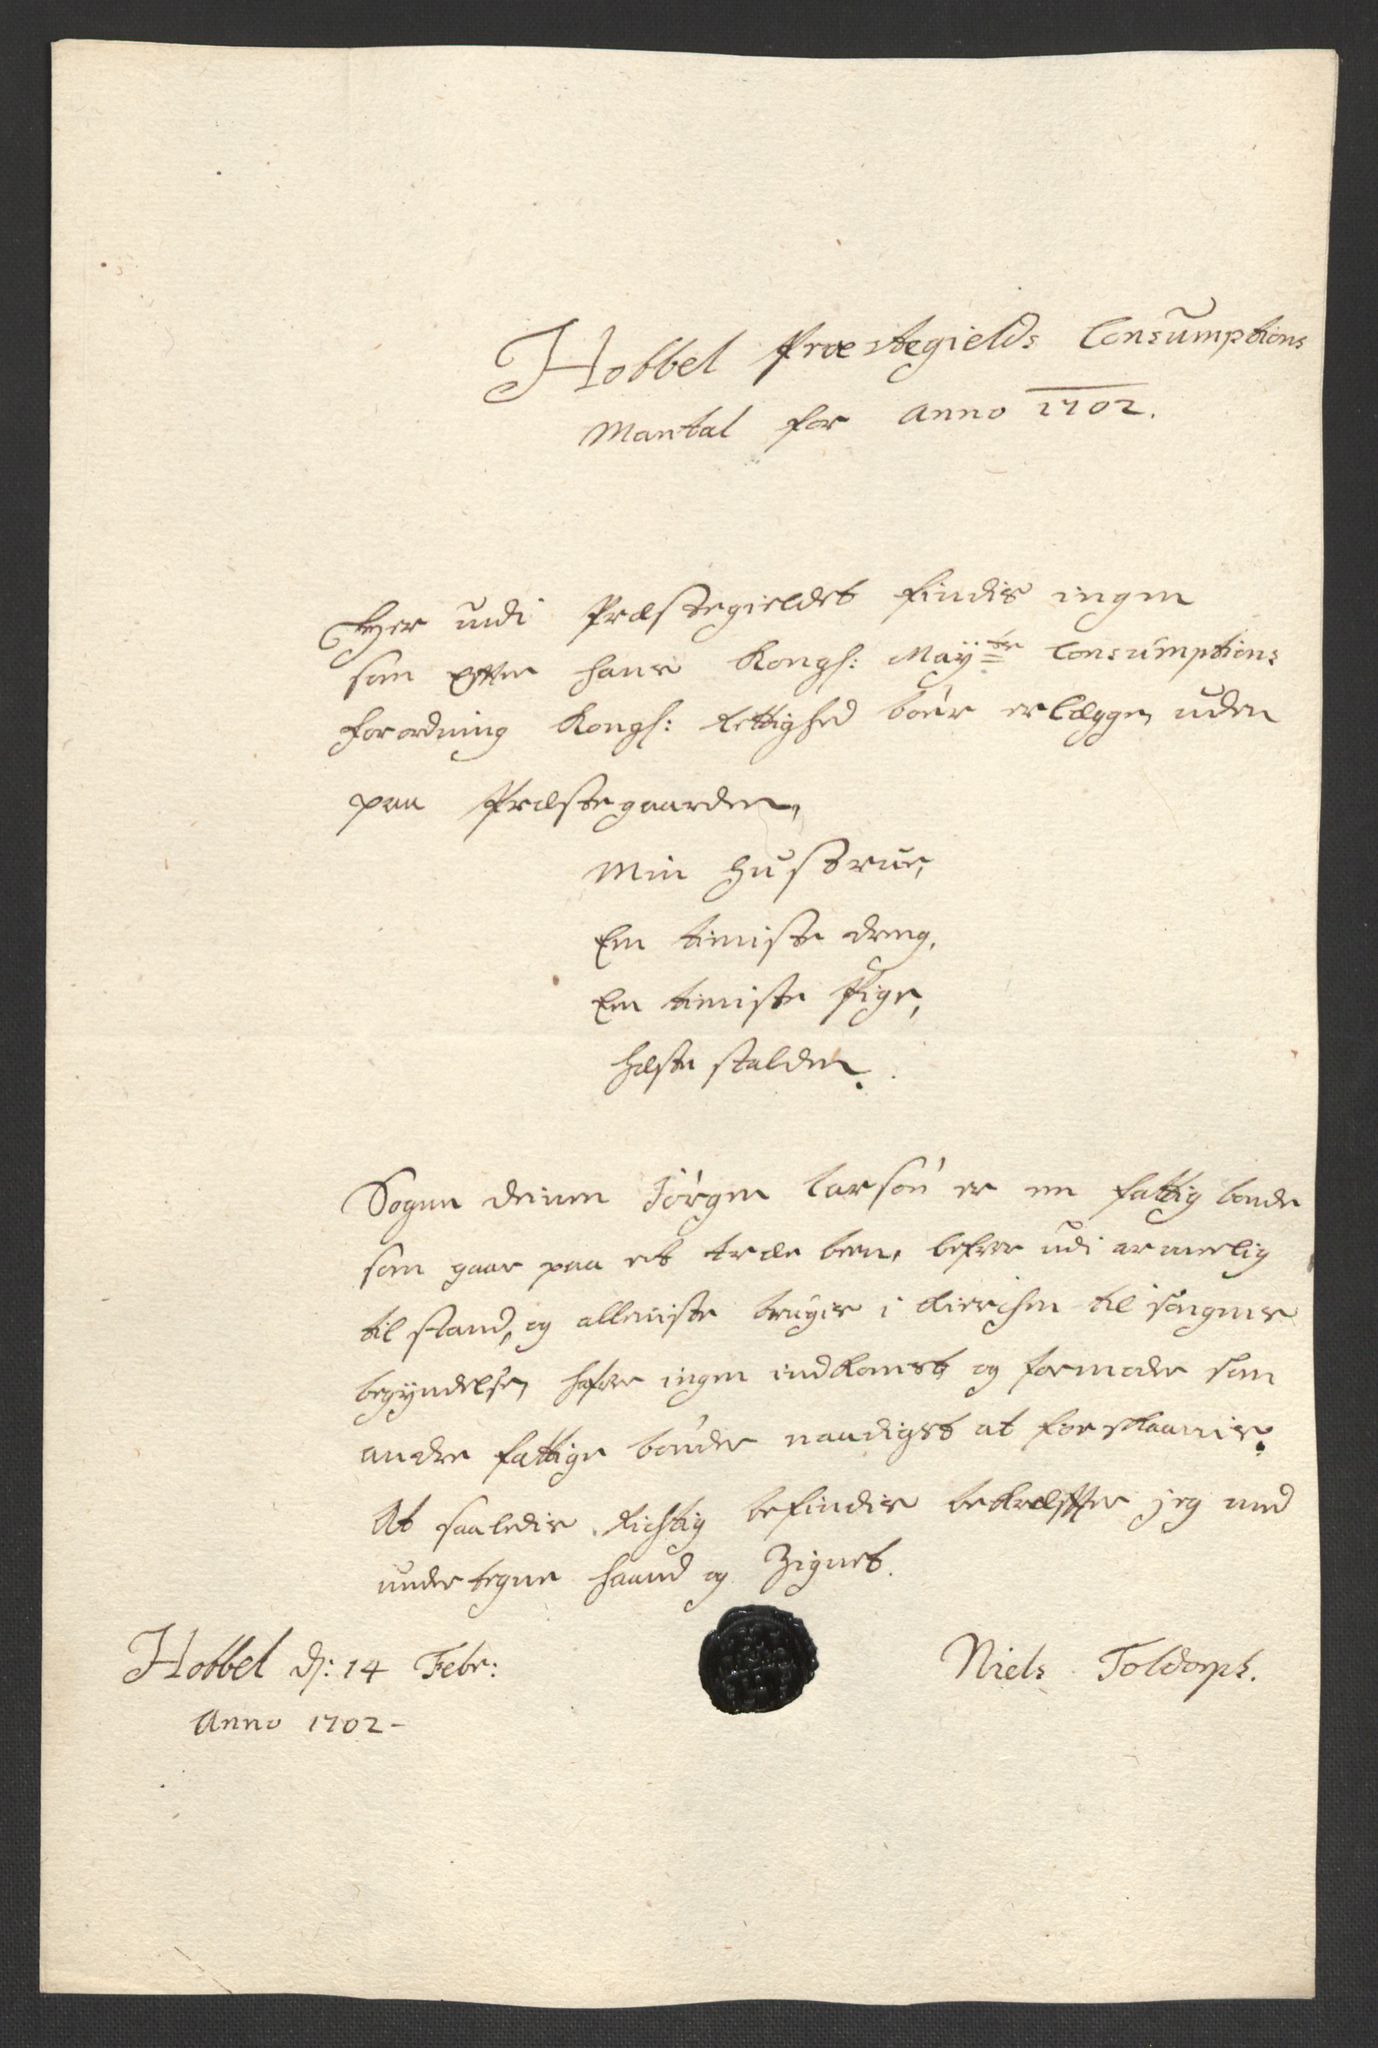 Hobbel Præstegields Consumptions
Mantal for Anno 1702.
Her udi Præstegieldet findis ingen
som efter hans Kongl: May:ts Consumptions
forordning Kongl: Rettighed boer erlægge, uden
paa Præstegaarden,
Min Hustrue,
En tieniste dreng,
En tieniste Pige,
Hæste stalden.
Sogne deinen Jörgen Larsön er en fattig bonde
som gaar paa et træe been, lefver udi armelig
tilstand, og alleniste brugis i Kierchen til sangens
begyndelse, hafver ingen indkomst og formoder som
andre fattige bönder naadigst at forskaanis.
At saaledis Richtig befindis bekræffter jeg med
undertegne haand og Zignet.
Hobbel d: 14 Febr:
Anno 1702-
Niels Toldorph.